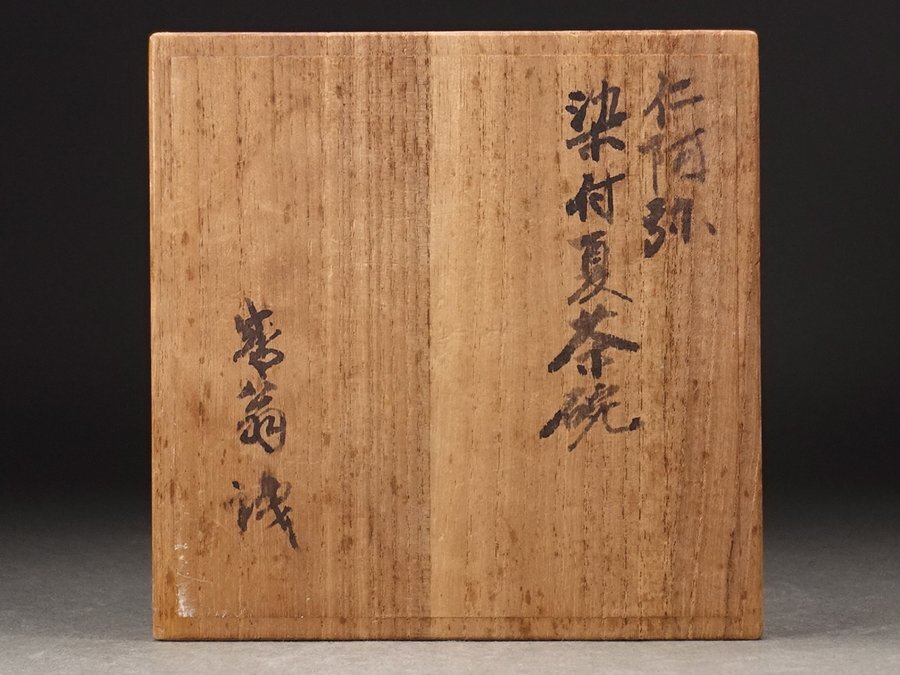 仁阿弥
染付夏茶碗
翁識